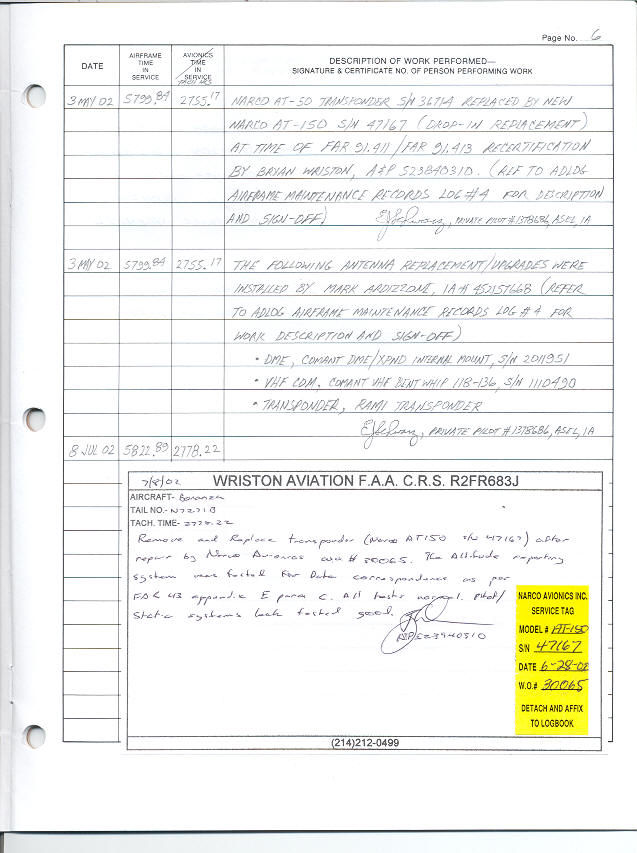 Page No. 6
DATE
AIRFRAME TIME IN SERVICE
AVIONICS TIME IN SERVICE
TACH HRS
DESCRIPTION OF WORK PERFORMED—
SIGNATURE & CERTIFICATE NO. OF PERSON PERFORMING WORK
3 MAY 02 5799.84 2755.17 NARCO AT-50 TRANSPONDER S/N 36714 REPLACED BY NEW
NARCO AT-150 S/N 47167 (DROP-IN REPLACEMENT)
AT TIME OF FAR 91.411/FAR 91.413 RECERTIFICATION
BY BRYAN WRISTON, A&P 523840310. (REF TO ADLOG
AIRFRAME MAINTENANCE RECORDS LOG #4 FOR DESCRIPTION
AND SIGN-OFF) , PRIVATE PILOT #1378686, ASEL, IA
3 MAY 02 5799.84 2755.17 THE FOLLOWING ANTENNA REPLACEMENT/UPGRADES WERE
INSTALLED BY MARK ARDIZZONE, IA# 452157668 (REFER
TO ADLOG AIRFRAME MAINTENANCE RECORDS LOG #4 FOR
WORK DESCRIPTION AND SIGN-OFF)
• DME, COMANT DME/XPND INTERNAL MOUNT, S/N 2011951
• VHF COM, COMANT VHF BENT WHIP 118-136, S/N 1110490
• TRANSPONDER, RAMI TRANSPONDER
, PRIVATE PILOT #1378686, ASEL, IA
8 JUL 02 5822.89 2778.22
7/8/02 WRISTON AVIATION F.A.A. C.R.S. R2FR683J
AIRCRAFT- Bonanza
TAIL NO.- N7271B
TACH. TIME- 2778.22
Remove and Replace transponder (Narco AT150 S/N 47167) after
repair by Narco Avionics w.o # 30065. The Altitude reporting
system was tested for Data correspondence as per
FAR 43 appendix E para c. All tests normal. Pitot/
Static systems leak tested good.
A&P 523940310
NARCO AVIONICS INC.
SERVICE TAG
MODEL # AT-150
S/N 47167
DATE 6-28-02
W.O.# 30065
DETACH AND AFFIX
TO LOGBOOK
(214)212-0499